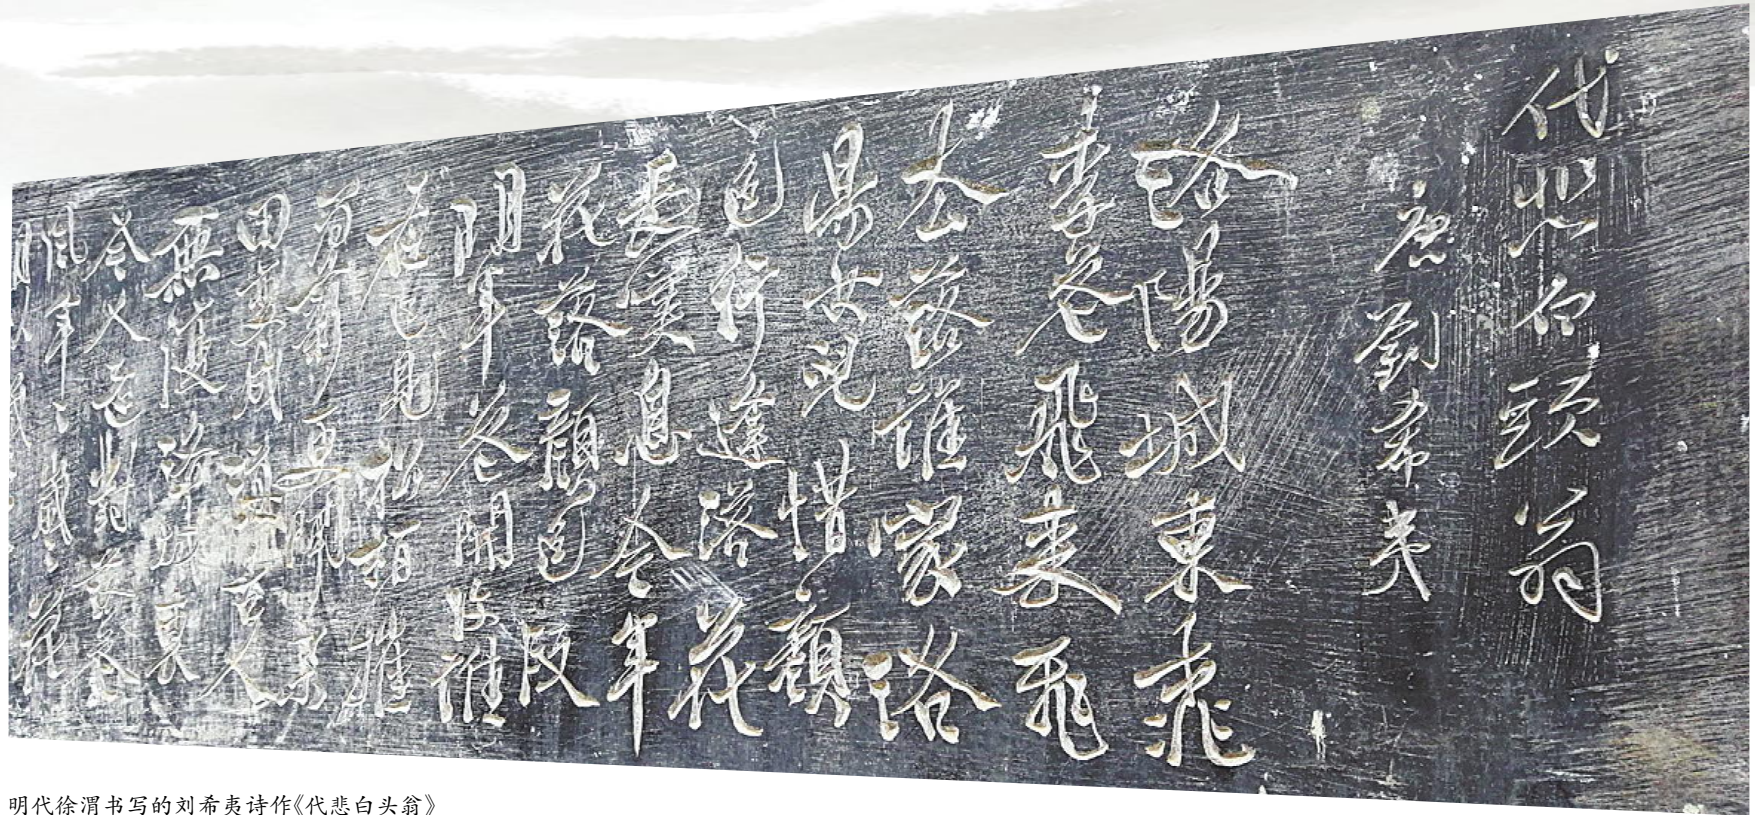 代悲白頭翁
唐劉希夷
洛陽城東桃
李花飛來飛
去落誰家洛
陽女兒惜顏
色行逢落花
長嘆息今年
花落顏色改
明年花開復誰
在已見松柏摧
為薪更聞桑
田變成海古人
無復洛城東
今人還對落花
風年〻歲〻花
明代徐渭书写的刘希夷诗作《代悲白头翁》